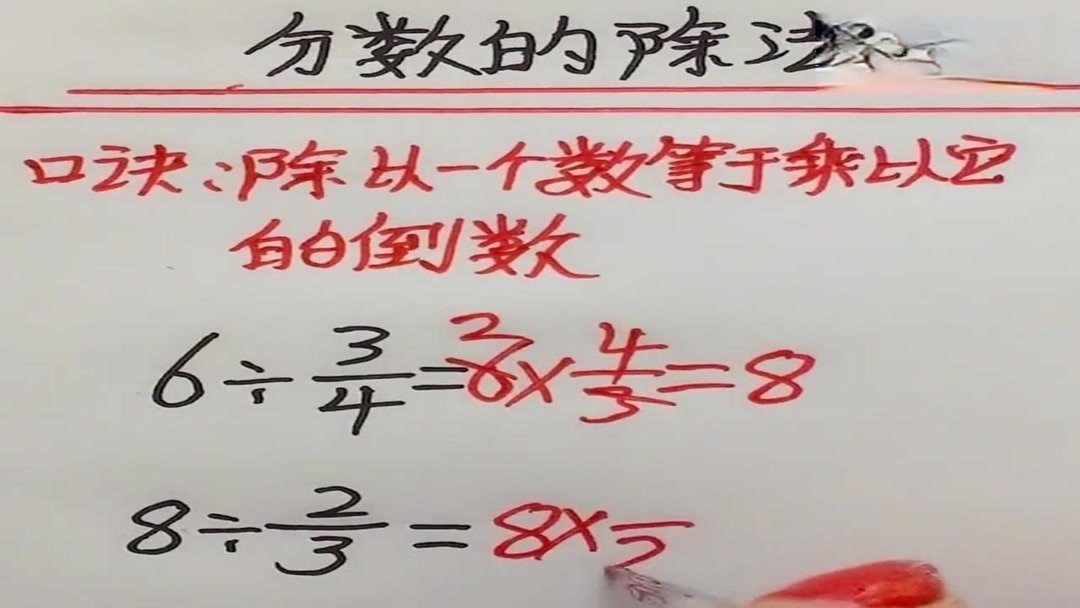 分数的除法
口诀:除以一个数等于乘以它
的倒数
6÷3/4=6×4/3=8
2
8÷2/3=8×/2